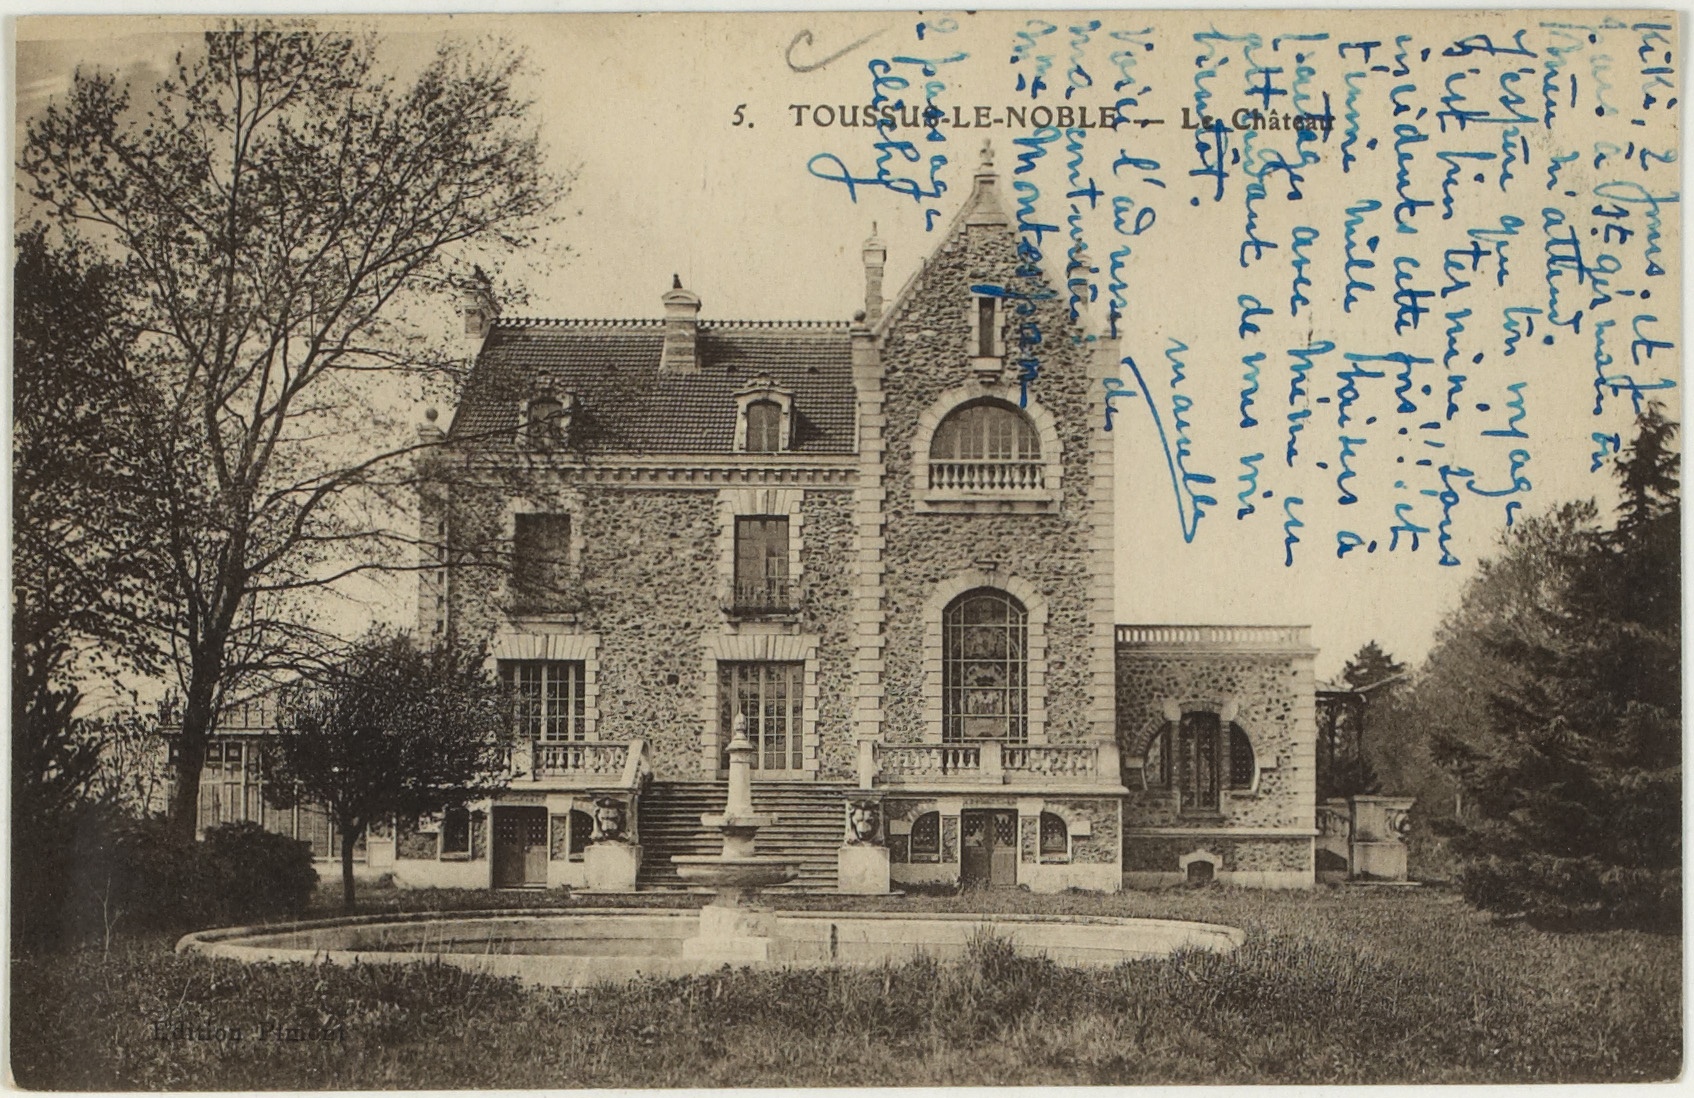 5. TOUSSUS-LE-NOBLE — Le Château
Kiki, 2 jours. et je
pars à St. germain où
Mémé m'attend.
J'espère que ton voyage
s'est bien terminé, sans
incidents cette fois!!! et
t'envoie mille baisers à
partager avec Mémé en
attendant de vous voir
bientôt.
Marcelle
Voici l'adresse de
ma couturière
Mme Montespan
2 passage
clichy
Edition Pimont